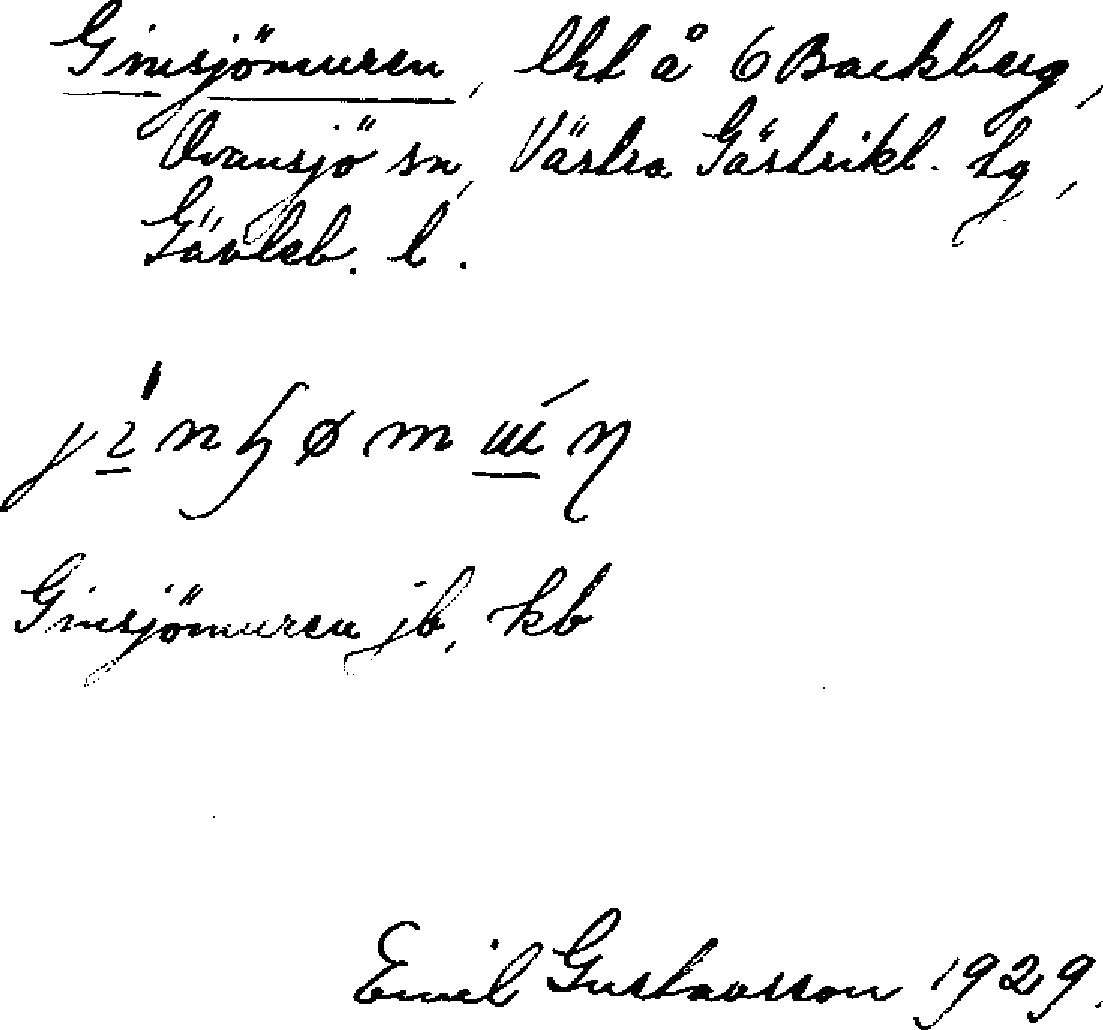 Ginsjömuren, lht å 6 Backberg,
Ovansjö sn, Västra Gästrikl. tg,
Gävleb. l.
Ginsjömuren jb, kb
Emil Gustavsson 1929.